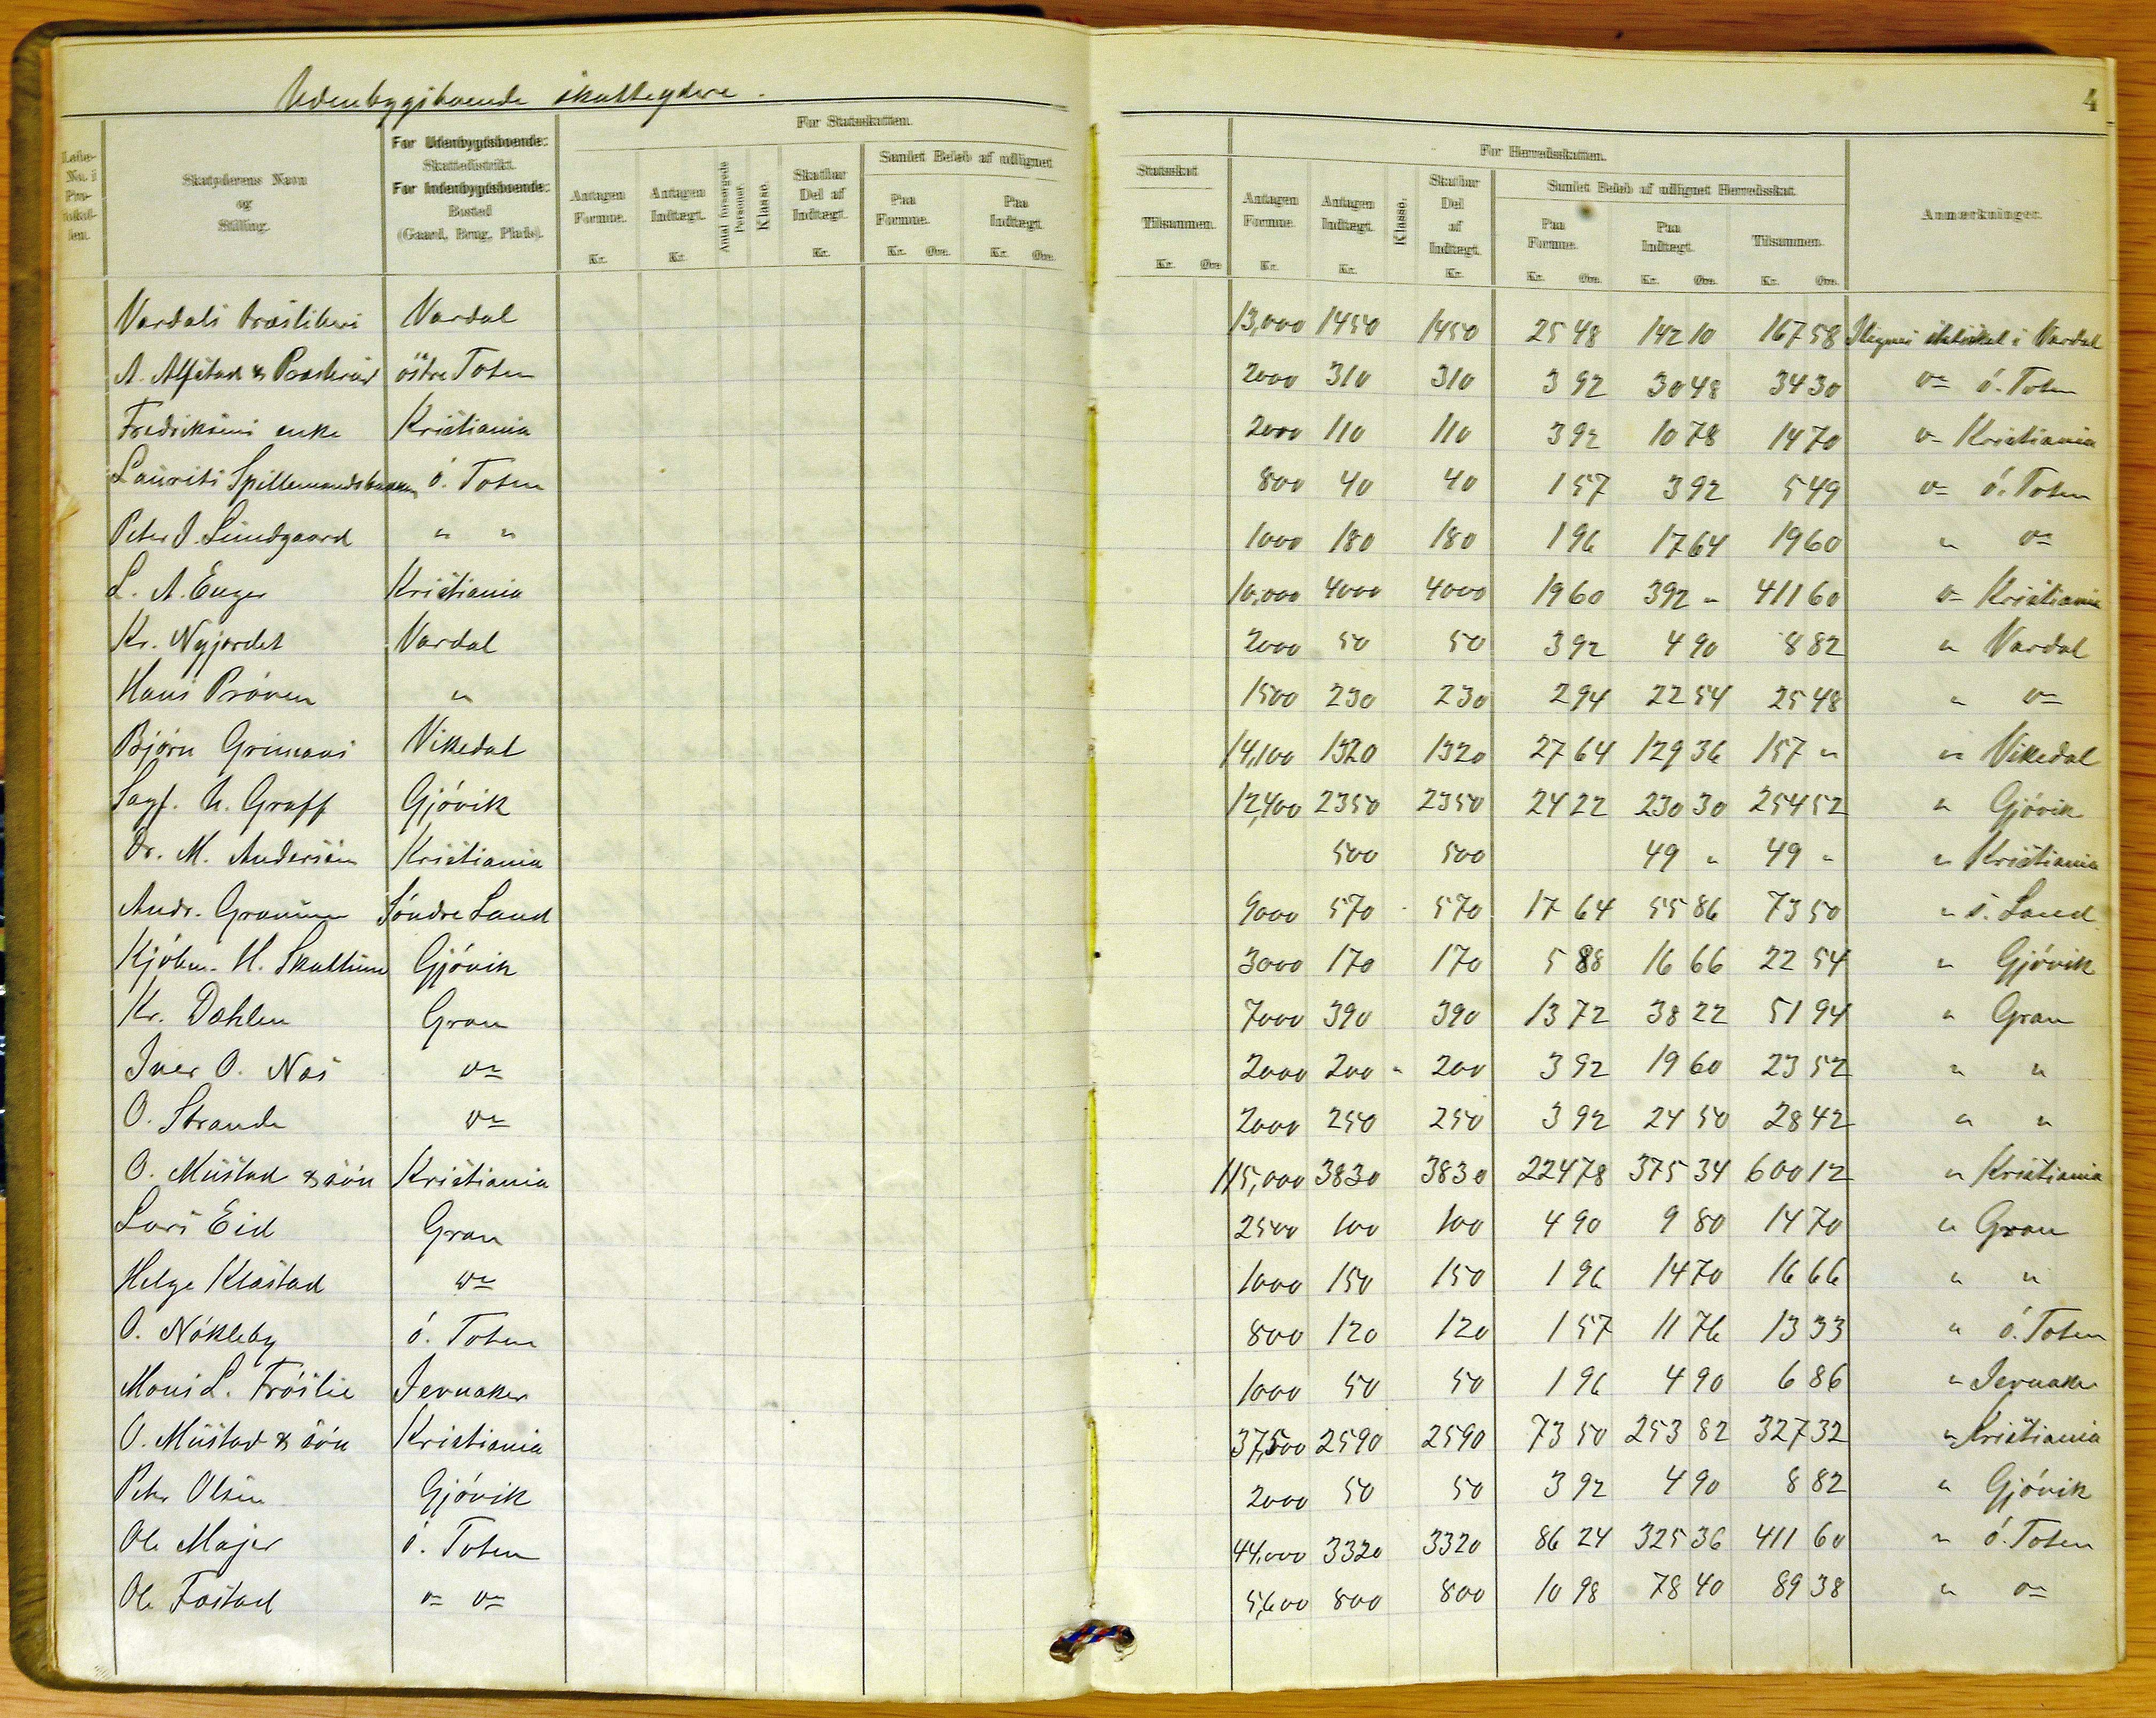 Udenbygsboende skatteydere.
4
Løbe-No. i Protokollen.
Skatyderens Navn og Stilling.
For Udenbygdsboende: Skattedistrikt. For Indenbygdsboende: Bosted (Gaard, Brug, Plads).
For Statsskatten.
Antagen Formue. Kr.
Antagen Indtægt. Kr.
Antal forsørgede Personer.
Klasse.
Skatbar Del af Indtægt. Kr.
Samlet Beløb af udlignet Statsskat
Paa Formue. Kr. Øre.
Paa Indtægt. Kr. Øre.
Tilsammen. Kr. Øre
For Herredsskatten.
Antagen Formue. Kr.
Antagen Indtægt. Kr.
Klasse.
Skatbar Del af Indtægt. Kr.
Samlet Beløb af udlignet Herredsskat.
Paa Formue. Kr. Øre.
Paa Indtægt. Kr. Øre.
Tilsammen. Kr. Øre.
Anmærkninger.
Vardals træsliberi Vardal 13,000 1450 1450 25 48 142 10 167 58 Ilignes statsskat i Vardal
A. Alfstad & østre Toten 2000 310 310 3 92 30 48 34 30 " ø. Toten
Fredriksens enke Kristiania 2000 110 110 3 92 10 78 14 70 " Kristiania
Laurits Spillemandsbakken ø. Toten 800 40 40 1 57 3 92 5 49 " ø. Toten
Peter J. Lundgaard " " 1000 180 180 1 96 17 64 19 60 " "
L. A. Enger Kristiania 10,000 4000 4000 19 60 392 " 411 60 " Kristiania
Kr. Nyjordet Vardal 2000 50 50 3 92 4 90 8 82 " Vardal
Hans Prøven " 1500 230 230 2 94 22 54 25 48 " "
Bjørn Grimans Vikedal 14,100 1320 1320 27 64 129 36 157 " " Vikedal
Sagf. N. Graff Gjøvik 12,400 2350 2350 24 22 230 30 254 52 " Gjøvik
Dr. M. Andersen Kristiania 500 500 49 " 49 " " Kristiania
Andr. Granum Søndre Land 9000 570 570 17 64 55 86 73 50 " s. Land
Kjøbm. H. Skattum Gjøvik 3000 170 170 5 88 16 66 22 54 " Gjøvik
Kr. Dahlen Gran 7000 390 390 13 72 38 22 51 94 " Gran
Iver O. Næs " 2000 200 " 200 3 92 19 60 23 52 " "
O. Strande " 2000 250 250 3 92 24 50 28 42 " "
O. Mustad & søn Kristiania 115,000 3830 3830 224 78 375 34 600 12 " Kristiania
Lars Eid Gran 2500 100 100 4 90 9 80 14 70 " Gran
Helge Klæstad " 1000 150 150 1 96 14 70 16 66 " "
O. Nøkleby ø. Toten 800 120 120 1 57 11 76 13 33 " ø. Toten
Mons L. Frøslie Jevnaker 1000 50 50 1 96 4 90 6 86 " Jevnaker
O. Mustad & søn Kristiania 37,500 2590 2590 73 50 253 82 327 32 " Kristiania
Peter Olsen Gjøvik 2000 50 50 3 92 4 90 8 82 " Gjøvik
Ole Majer ø. Toten 44,000 3320 3320 86 24 325 36 411 60 " ø. Toten
Ole Fæstad " " 5,600 800 800 10 98 78 40 89 38 " "